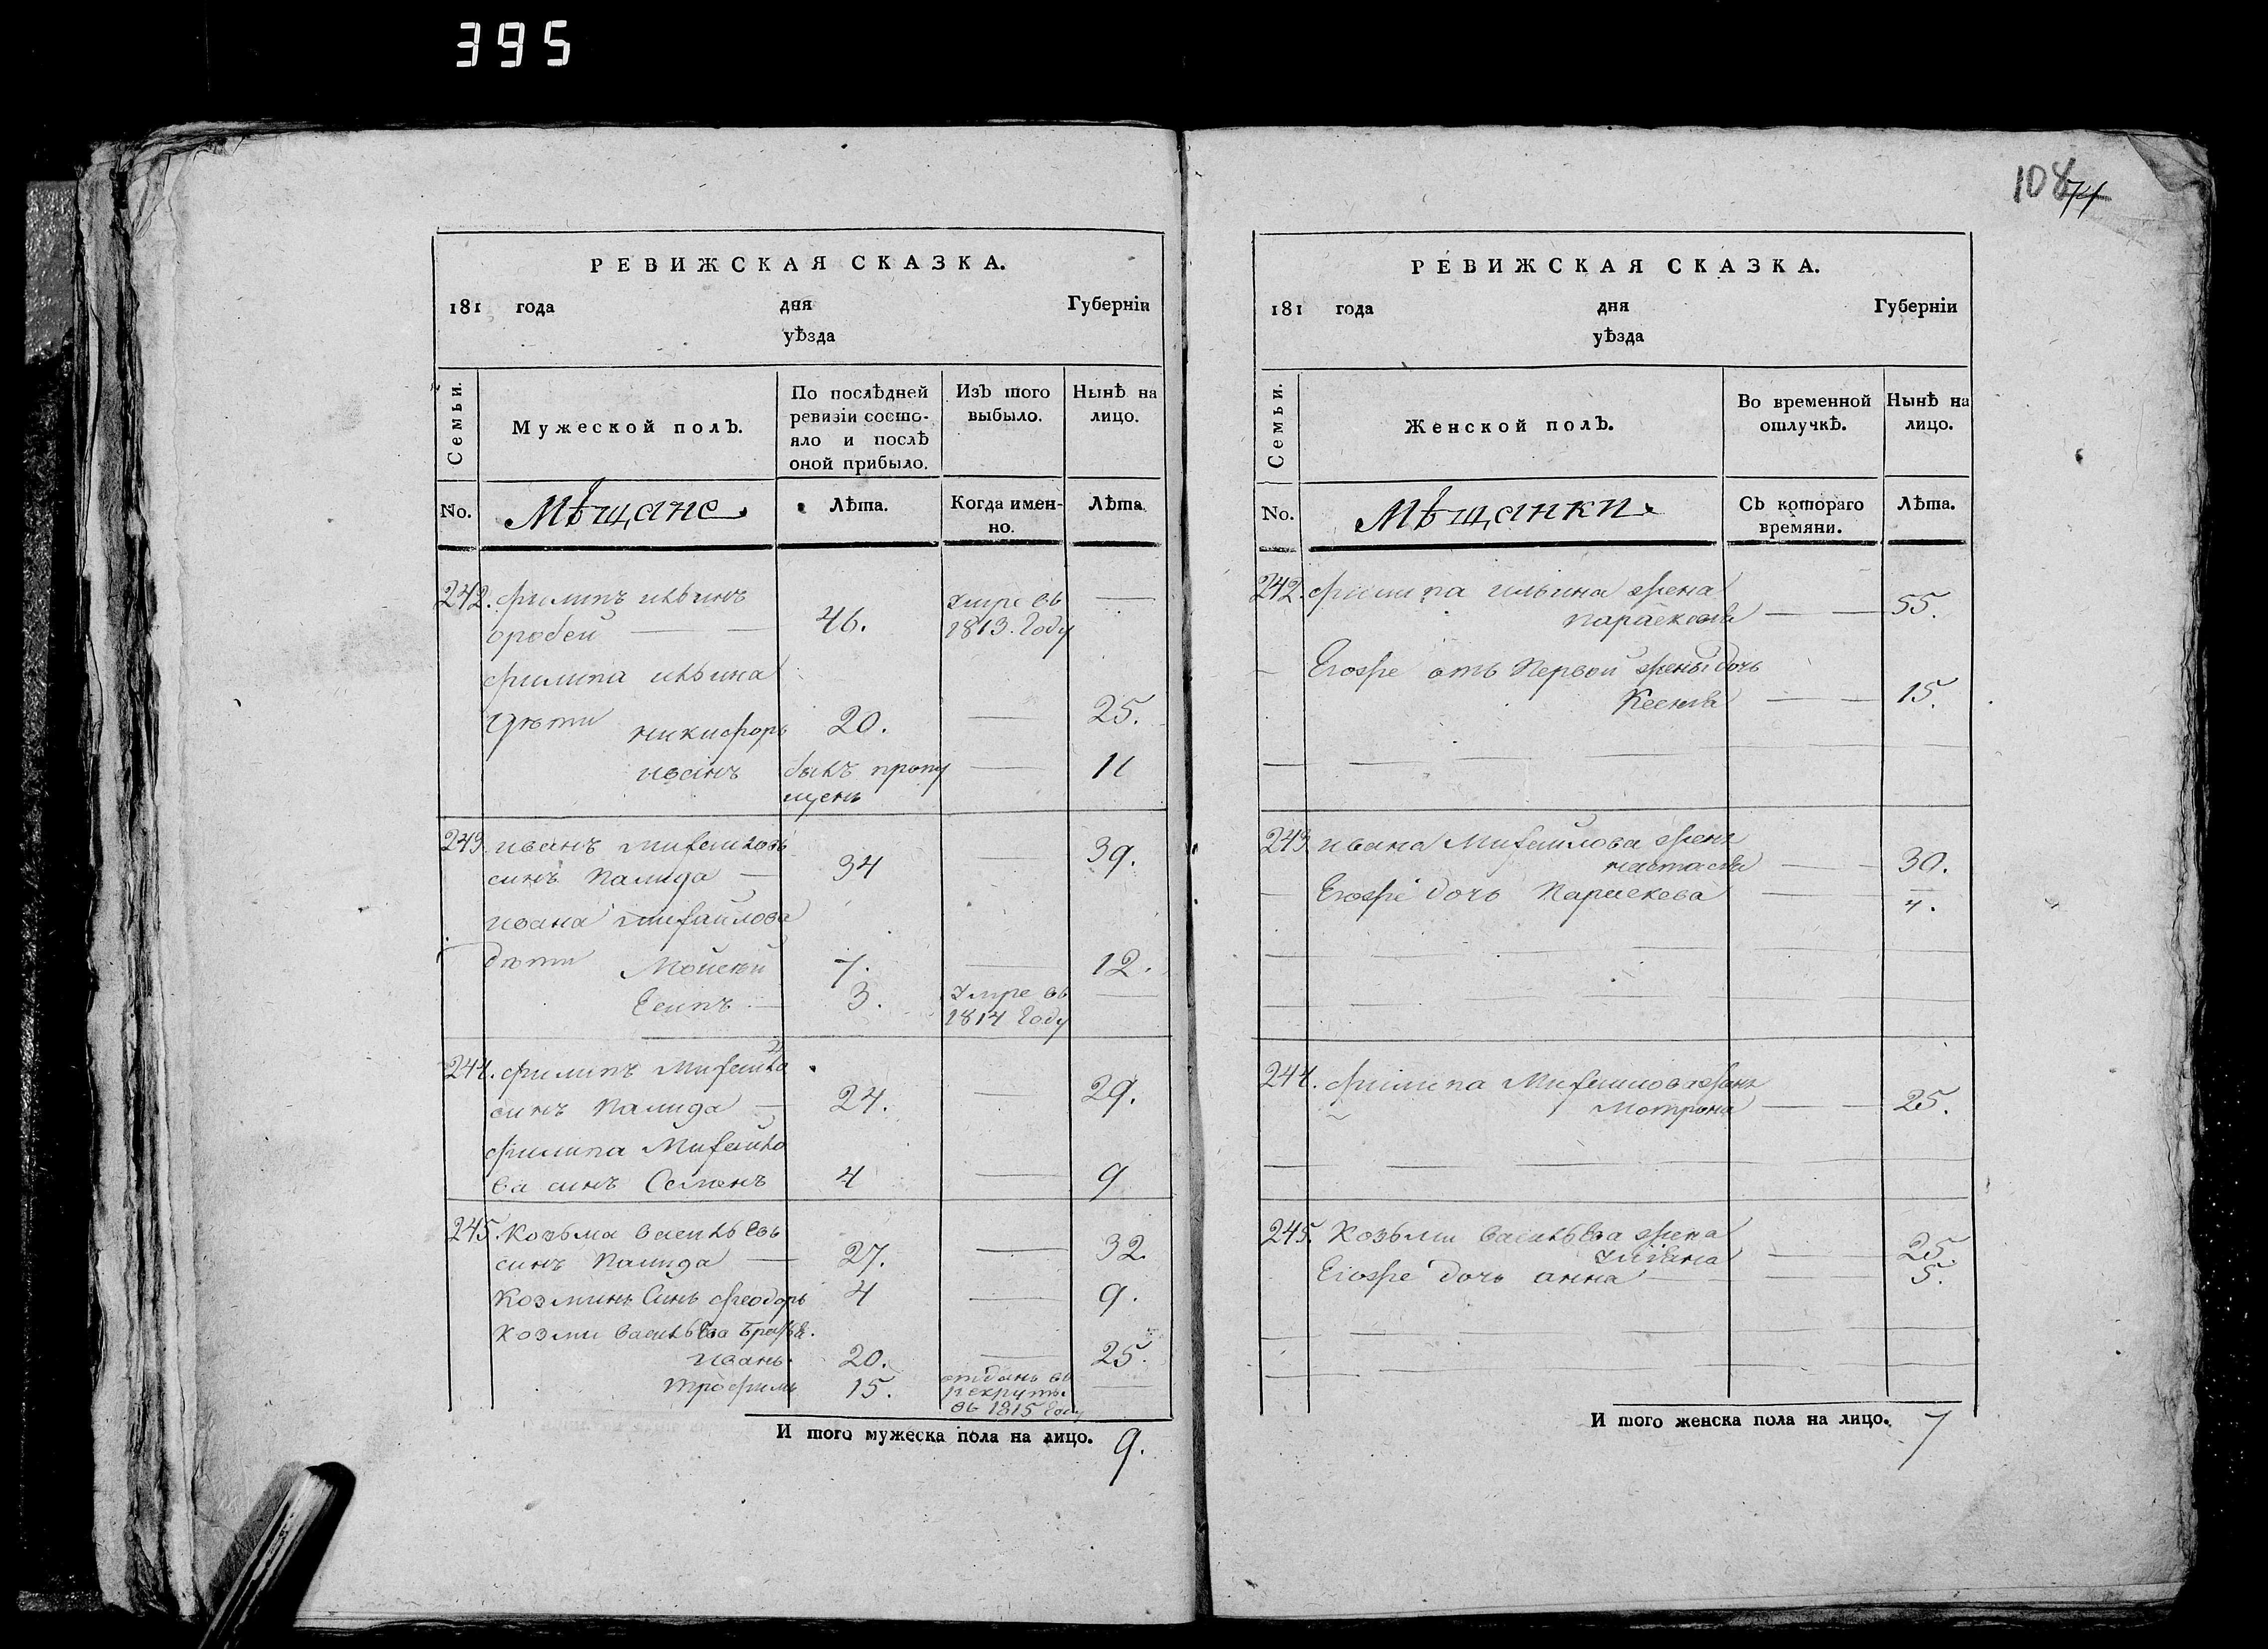 395
108 74
РЕВИЖСКАЯ СКАЗКА.
181 года дня Губерніи
уѣзда
Семьи.
Мужеской полъ.
По послѣдней ревизіи состо-
яло и послѣ
оной прибыло.
Изъ того
выбыло.
Нынѣ на
лицо.
No.
Мѣщане.
Лѣта.
Когда имен-
но.
Лѣта.
242. Филипъ Ильинъ
46. Умре въ
1813. Году —
Филипа Ильина
дѣти Никифоръ 20. — 25.
Иванъ былъ пропу
щенъ — 11
243. Иванъ Михайловъ
синъ Палида — 34 — 39.
Ивана Михайлова
дѣти Мойсѣй 7. — 12.
Есипъ — 3. Умре въ
1814 Году —
244. Филипъ Михайло
синъ Палида — 24. — 29.
Филипа Михайло
ва синъ Семенъ 4 — 9
245. Козьма Васильевъ
синъ Палида — 27. — 32.
Козминъ Синъ Феодоръ 4 — 9.
Козми Васильева Братья.
Иванъ 20. — 25.
Трофимъ 15. отданъ въ
рекруты
въ 1815 Году —
И того мужеска пола на лицо. 9.
РЕВИЖСКАЯ СКАЗКА.
181 года дня Губерніи
уѣзда
Семьи.
Женской полъ.
Во временной
отлучкѣ.
Нынѣ на
лицо.
No.
Мѣщанки.
Съ котораго
времяни.
Лѣта.
242. Филипа Ильина жена
Парасковія — — 55.
Егожe отъ Первой жены дочь
Ксенія — — 15.
243. Ивана Михайлова жена
Настасія — — 30.
Егоже дочь Парасковa — 4.
244. Филипа Михайлова жена
Мотрона — — 25.
245. Козьми Васильева жена
Уліяна — 25.
Егоже дочь Анна — — 5.
И того женска пола на лицо. 7